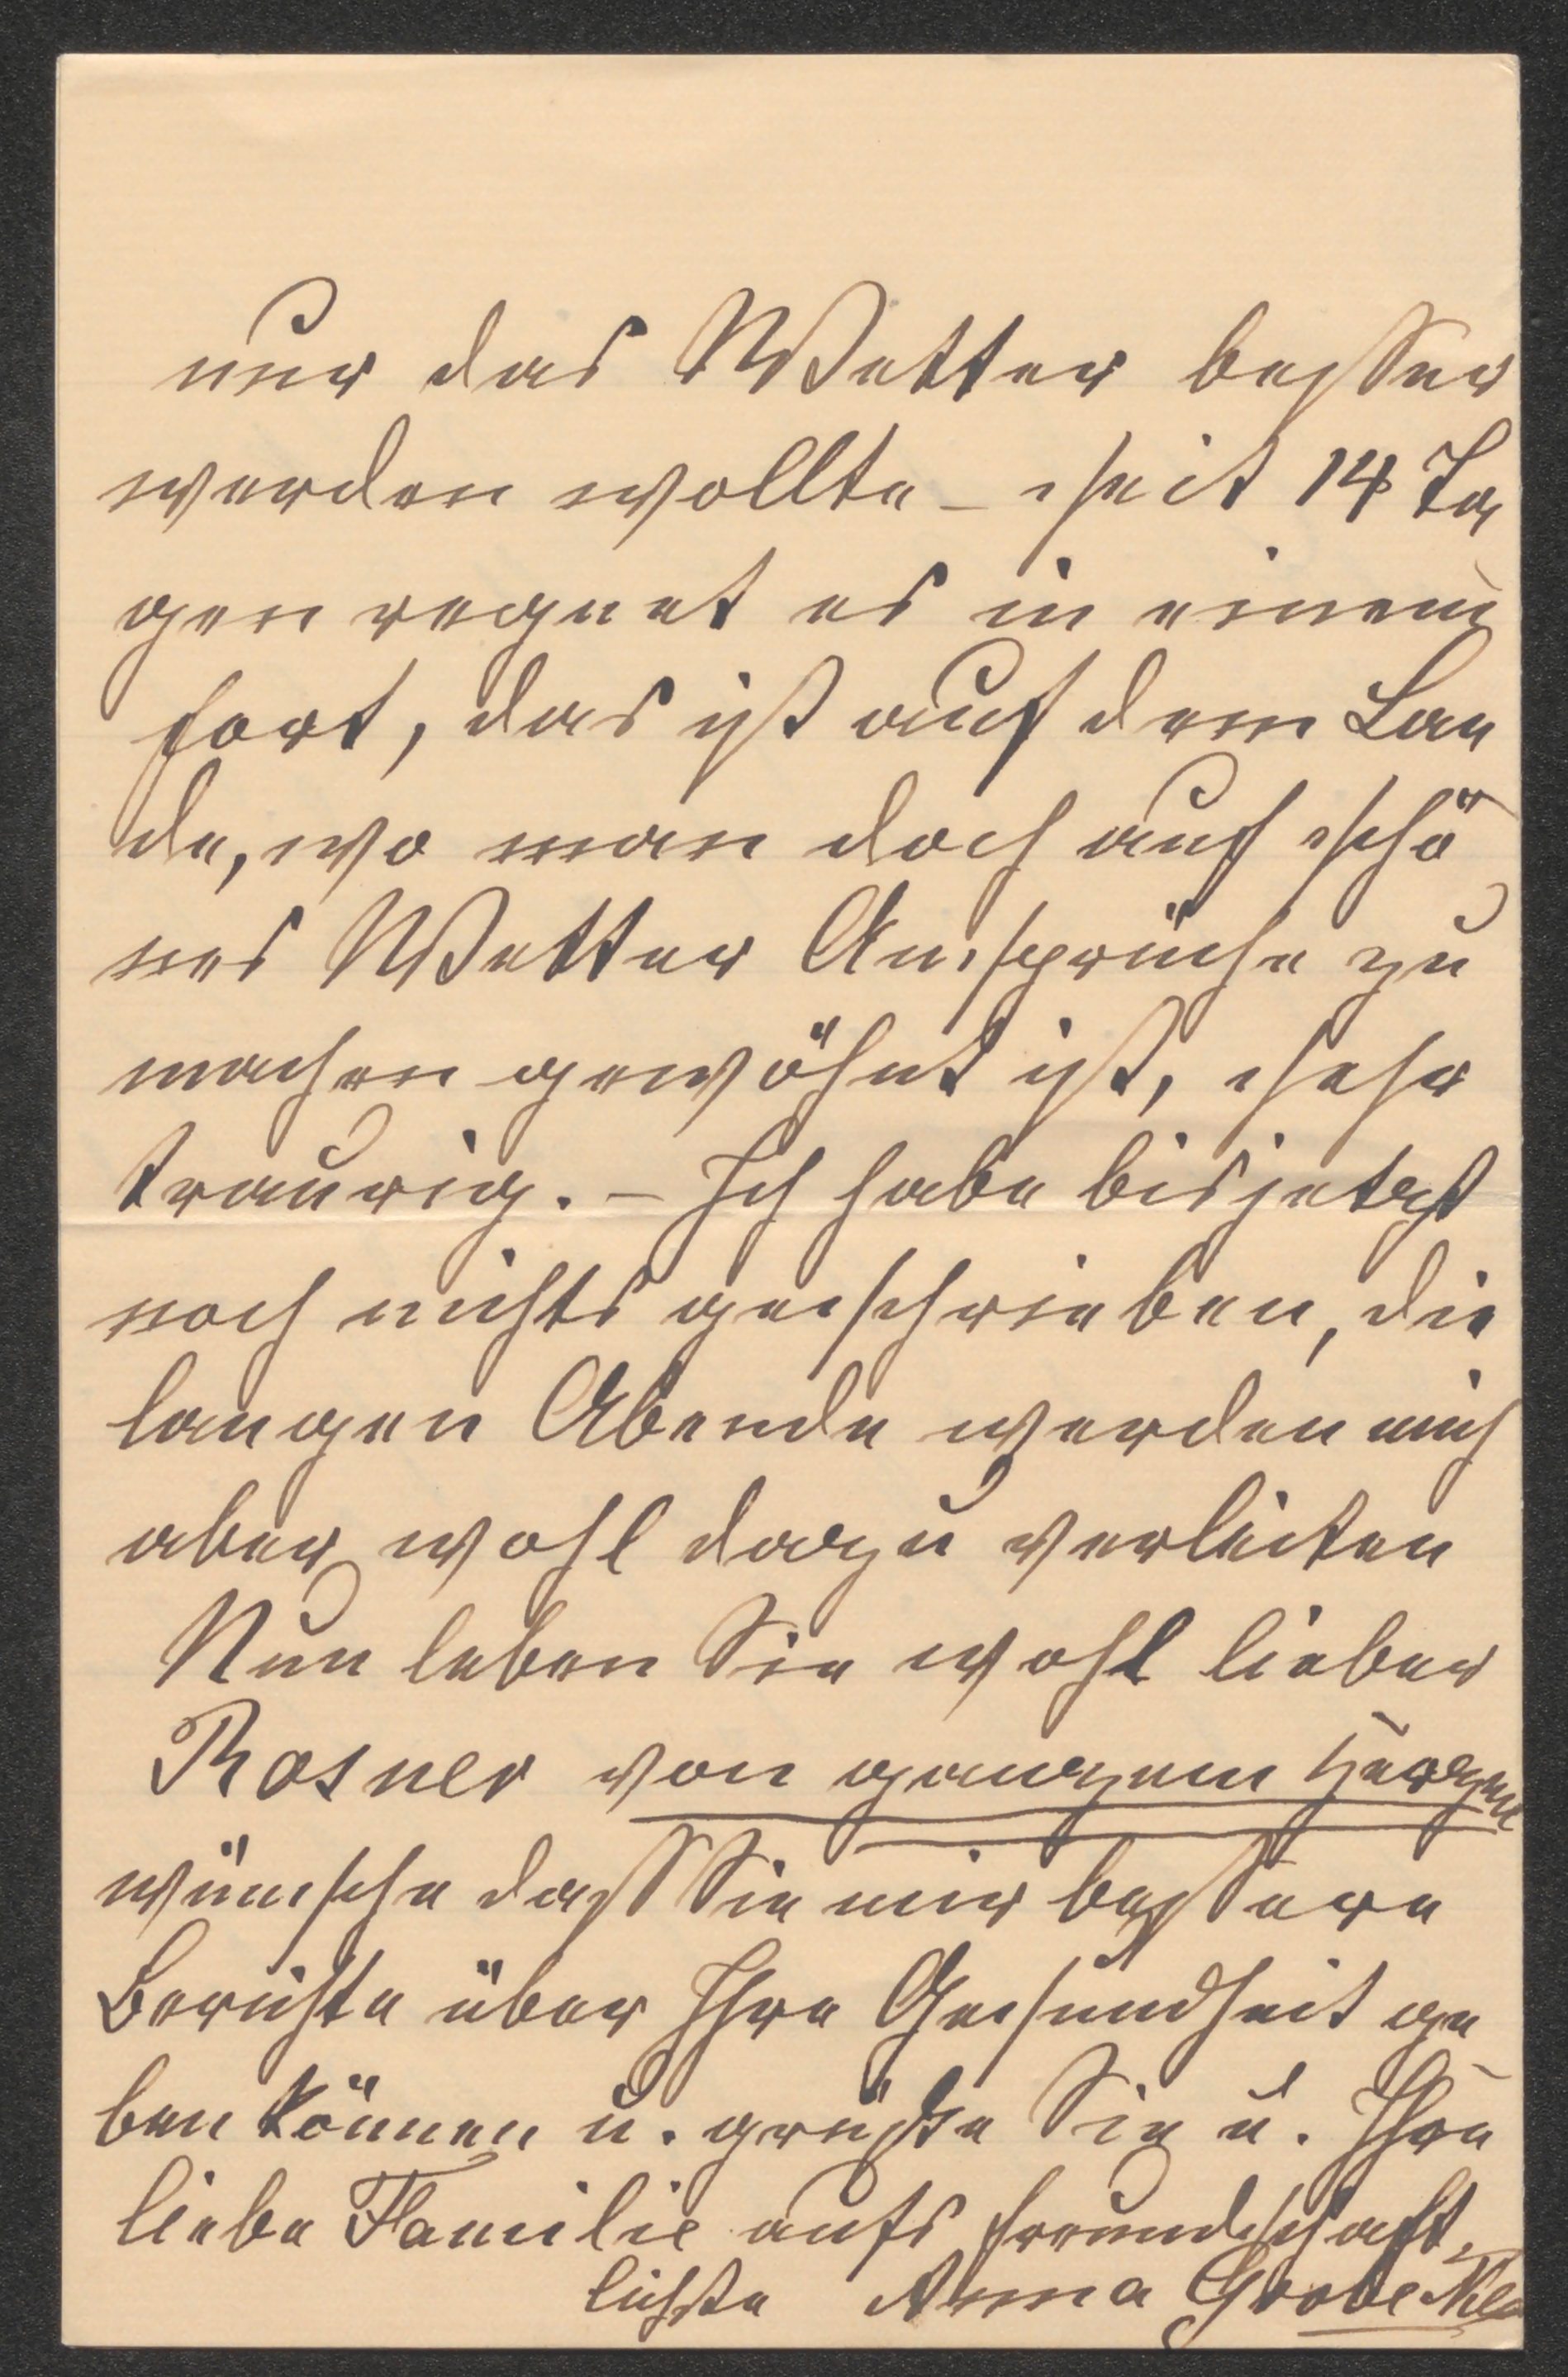 nur das Wetter besser
werden wollte – seit 14 Ta
gen regnet es in einem
fort, das ist auf dem Lan
de, wo man doch auf schö
nes Wetter Ansprüche zu
machen gewöhnt ist, sehr
traurig. – Ich habe bisjetzt
noch nichts geschrieben, die
langen Abende werden mich
aber wohl dazu verleiten
Nun leben Sie wohl lieber
Rosner von ganzem Herzen
wünsche daß Sie mir bessere
Berichte über Ihre Gesundheit ge
ben können u. grüße Sie u. Ihre
liebe Familie aufs freundschaft,
lichste Anna Grobe